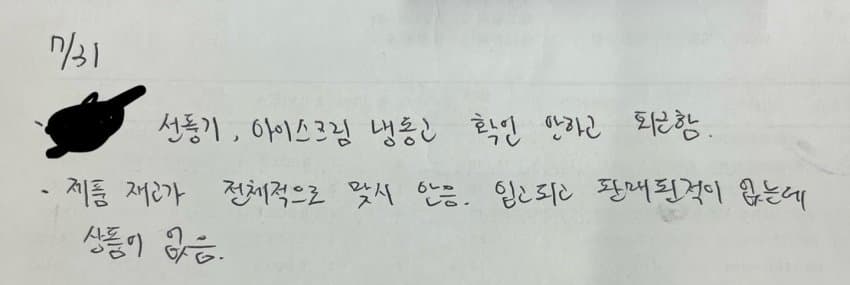 7/31
· 선풍기, 아이스크림 냉동고 확인 안하고 퇴근함.
· 제품 재고가 전체적으로 맞지 않음. 입고되고 판매된적이 없는데
상품이 없음.